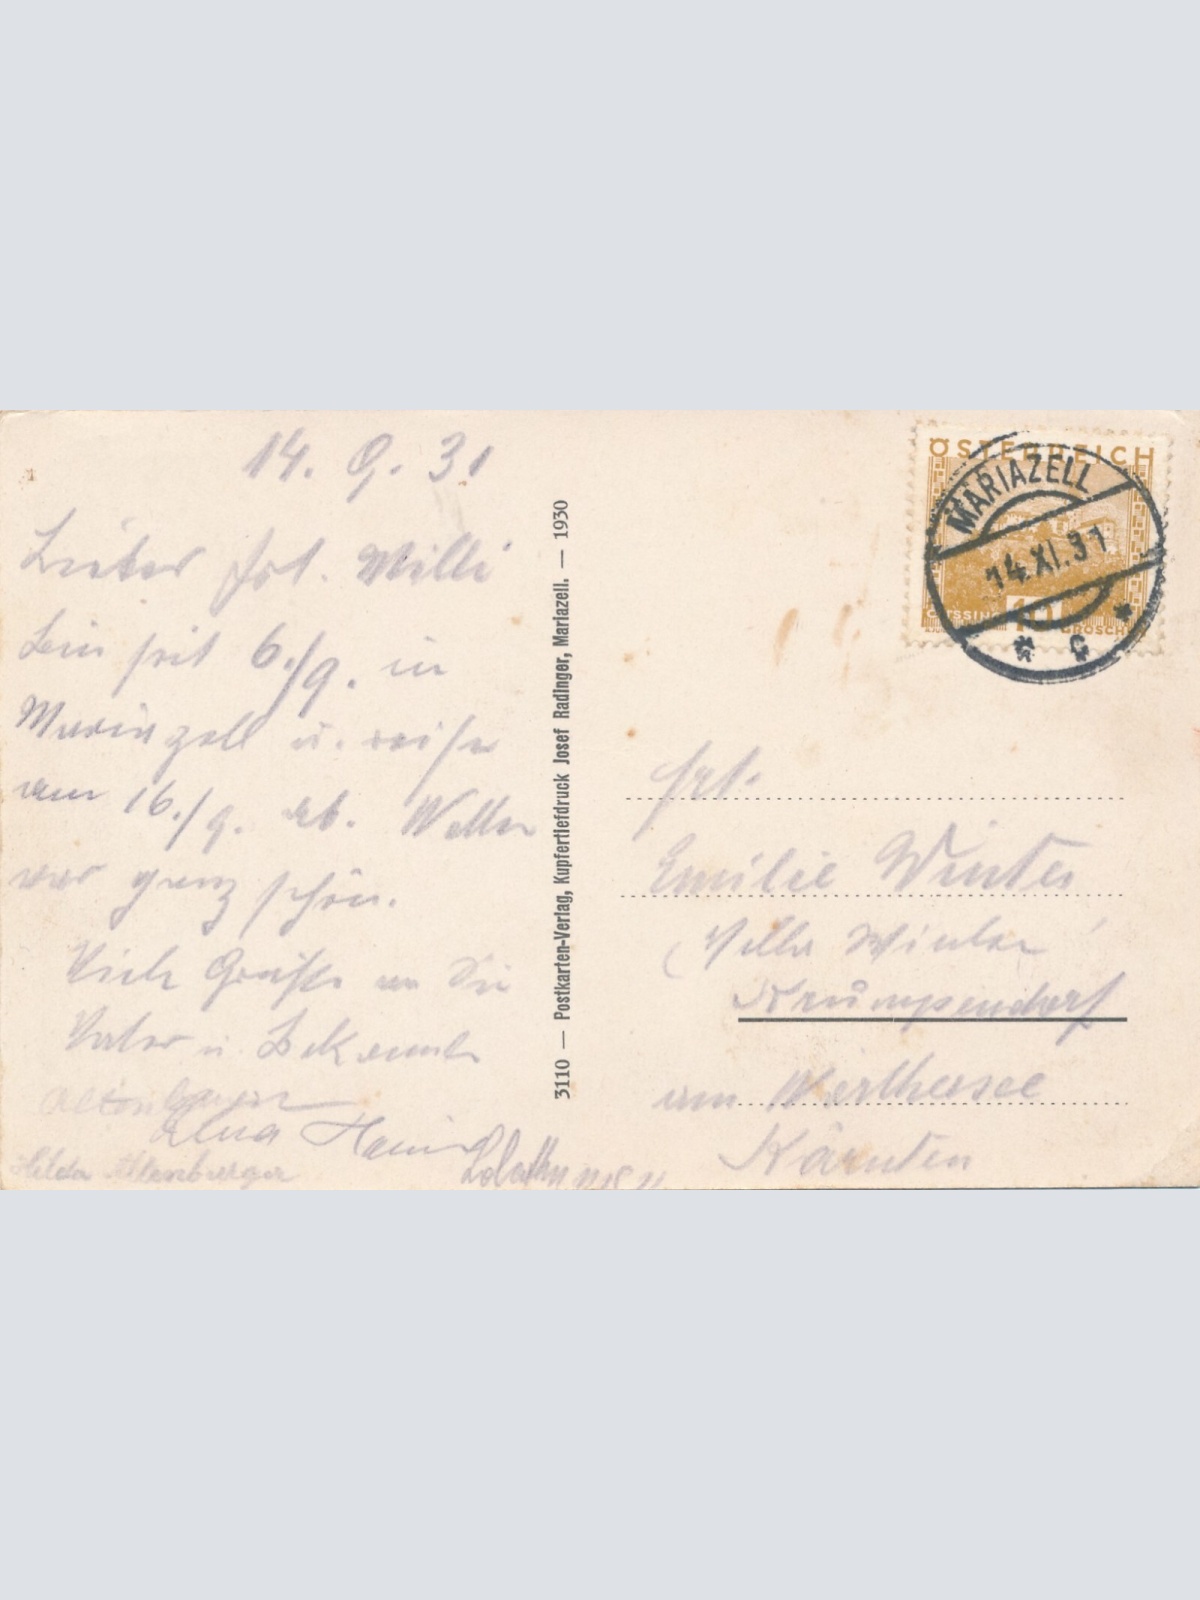 14. 9. 31
Liebes Frl. Milli
bin seit 6./9. in
Mariazell u. reise
am 16./9. ab. Wetter
war ganz schön.
Viele Grüße an die
Vater u. Bekannte
Hilda Altenburger
3110 — Postkarten-Verlag, Kupfertiefdruck Josef Radinger, Mariazell. — 1930
ÖSTERREICH
GÜSSING 10 GROSCHEN
MARIAZELL
14.XI.31
* c *
Frl.
Emilie Winter
(Villa Winter)
Krumpendorf
am Wörthersee
Kärnten